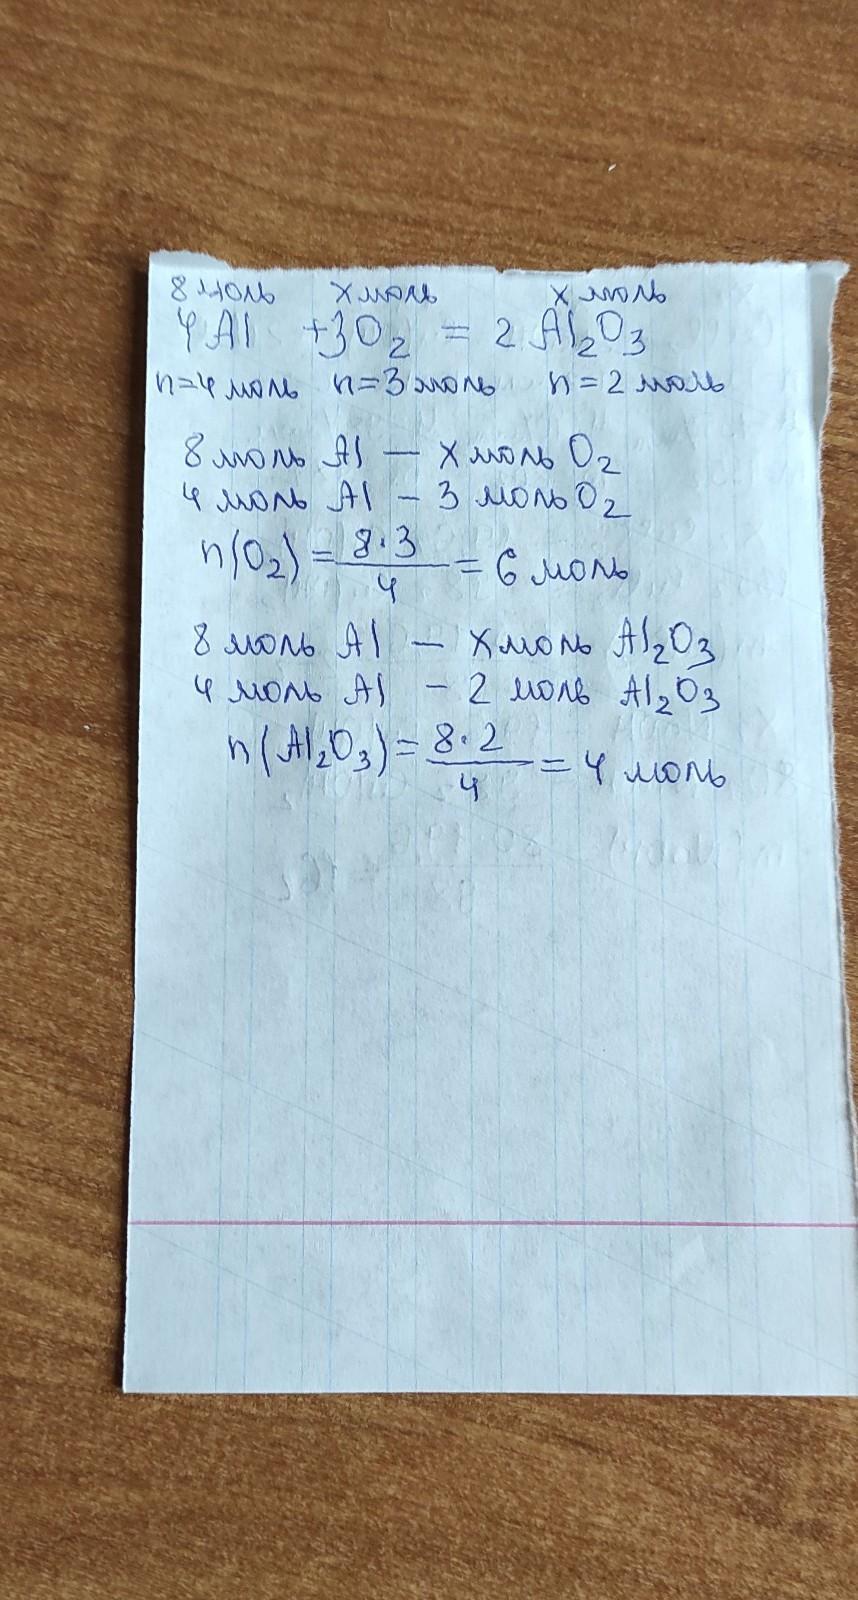 8 моль x моль x моль
4Al +3O₂ = 2 Al₂O₃
n=4 моль n=3 моль n=2 моль
8 моль Al — x моль O₂
4 моль Al – 3 моль O₂
n(O₂) = 8·3/4 = 6 моль
8 моль Al — x моль Al₂O₃
4 моль Al – 2 моль Al₂O₃
n(Al₂O₃) = 8·2/4 = 4 моль